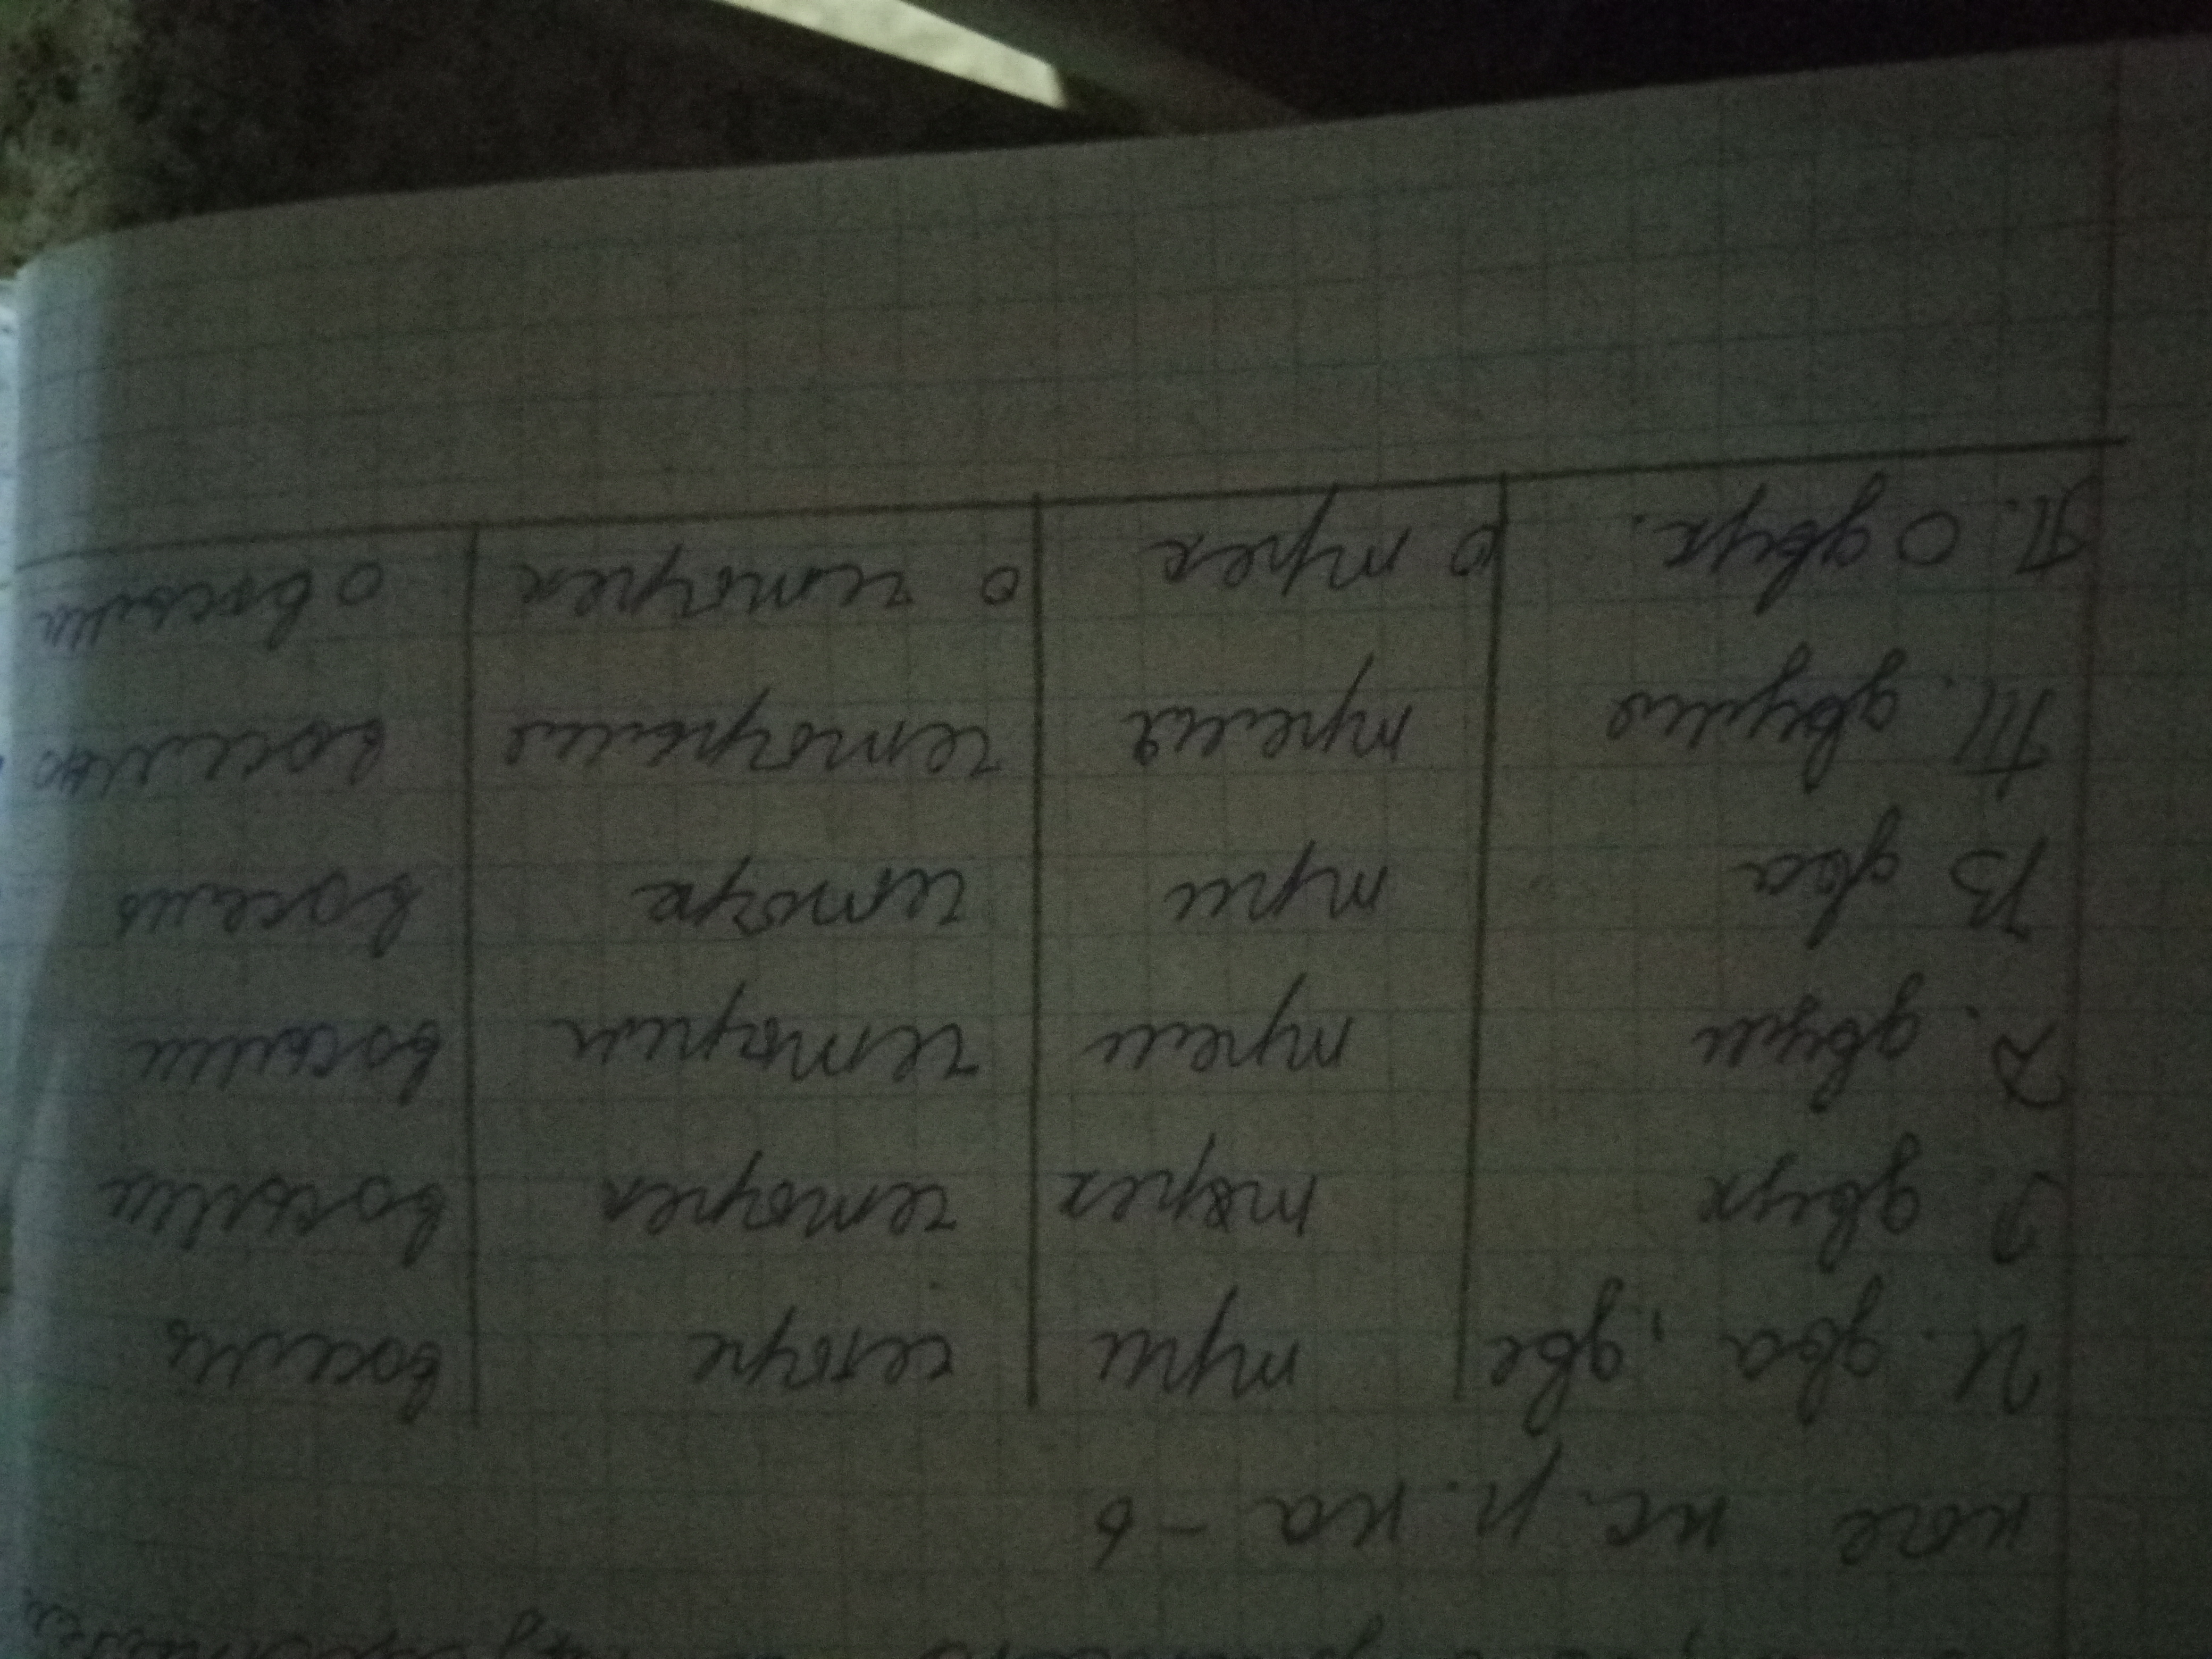 ное ж. р. на -ь
И. два, две три четыре восемь
Р. двух трех четырех восьми
Д. двум трем четырем восьми
В два три четыре восемь
Т. двумя тремя четырьмя восемью
П. О двух. о трех о четырех о восьми